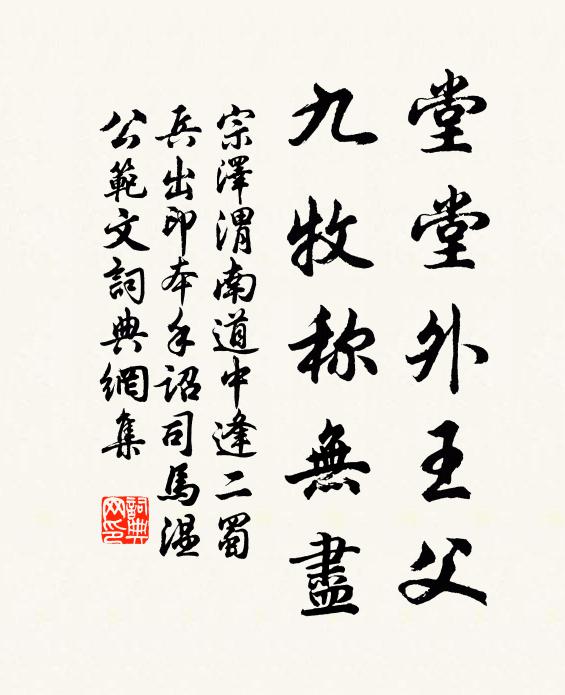 堂堂外王父
九牧称無盡
宗澤渭南道中逢二蜀
兵出印本手詔司馬温
公範文詞典網集
詞典网印